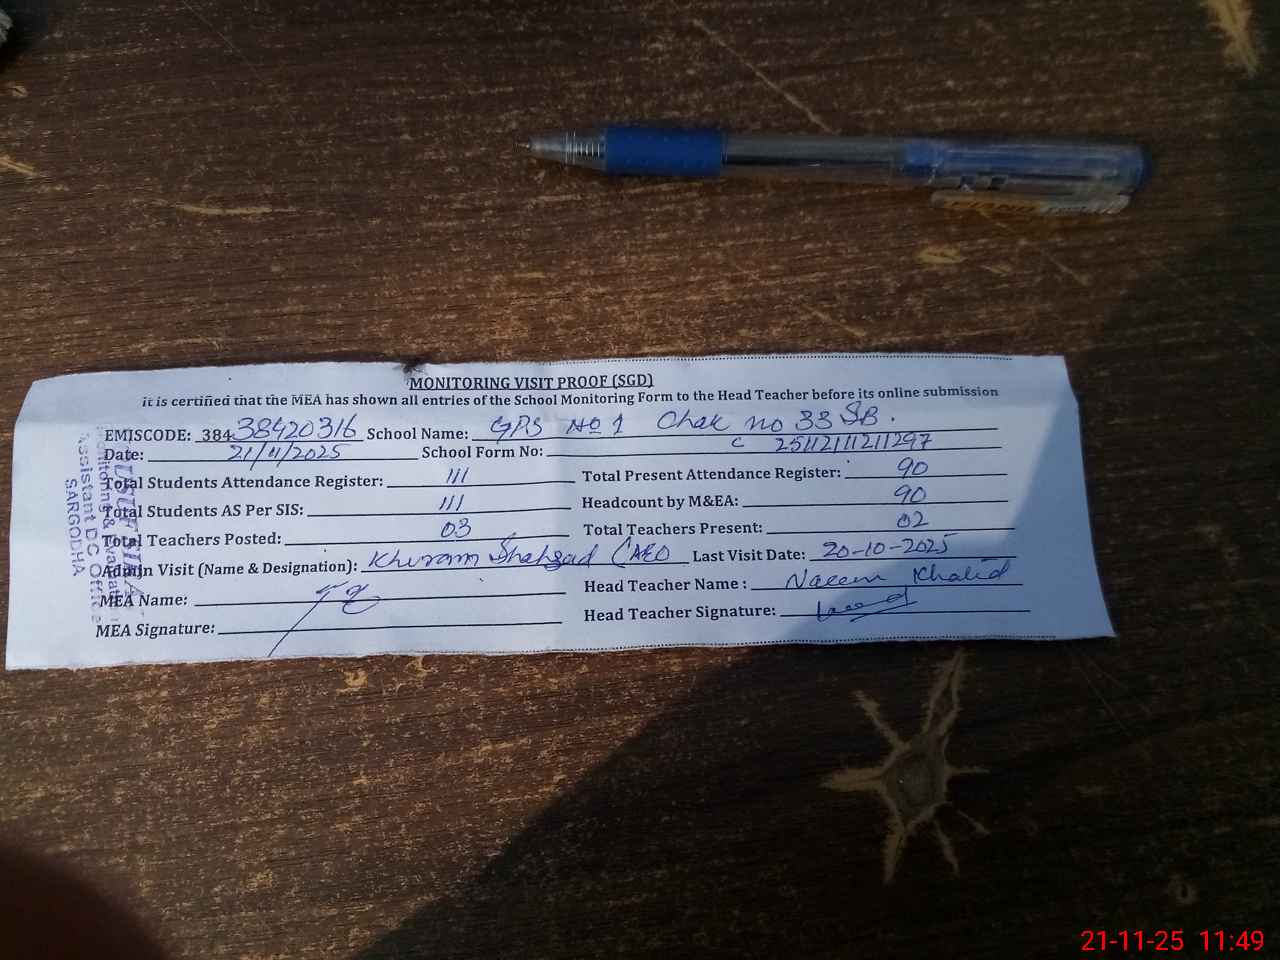 MONITORING VISIT PROOF (SGD)
it is certified that the MEA has shown all entries of the School Monitoring Form to the Head Teacher before its online submission
EMISCODE: 38438420316 School Name: GPS No 1 Chak no 33 SB.
Date: 21/11/2025 School Form No: c 251121111211297
Total Students Attendance Register: 111 Total Present Attendance Register: 90
Total Students AS Per SIS: 111 Headcount by M&EA: 90
Total Teachers Posted: 03 Total Teachers Present: 02
Admin Visit (Name & Designation): Khuram Shahzad (AEO Last Visit Date: 20-10-2025
MEA Name: Head Teacher Name : Naeem Khalid
MEA Signature: Head Teacher Signature:
Assistant DC Office
SARGODHA
21-11-25 11:49